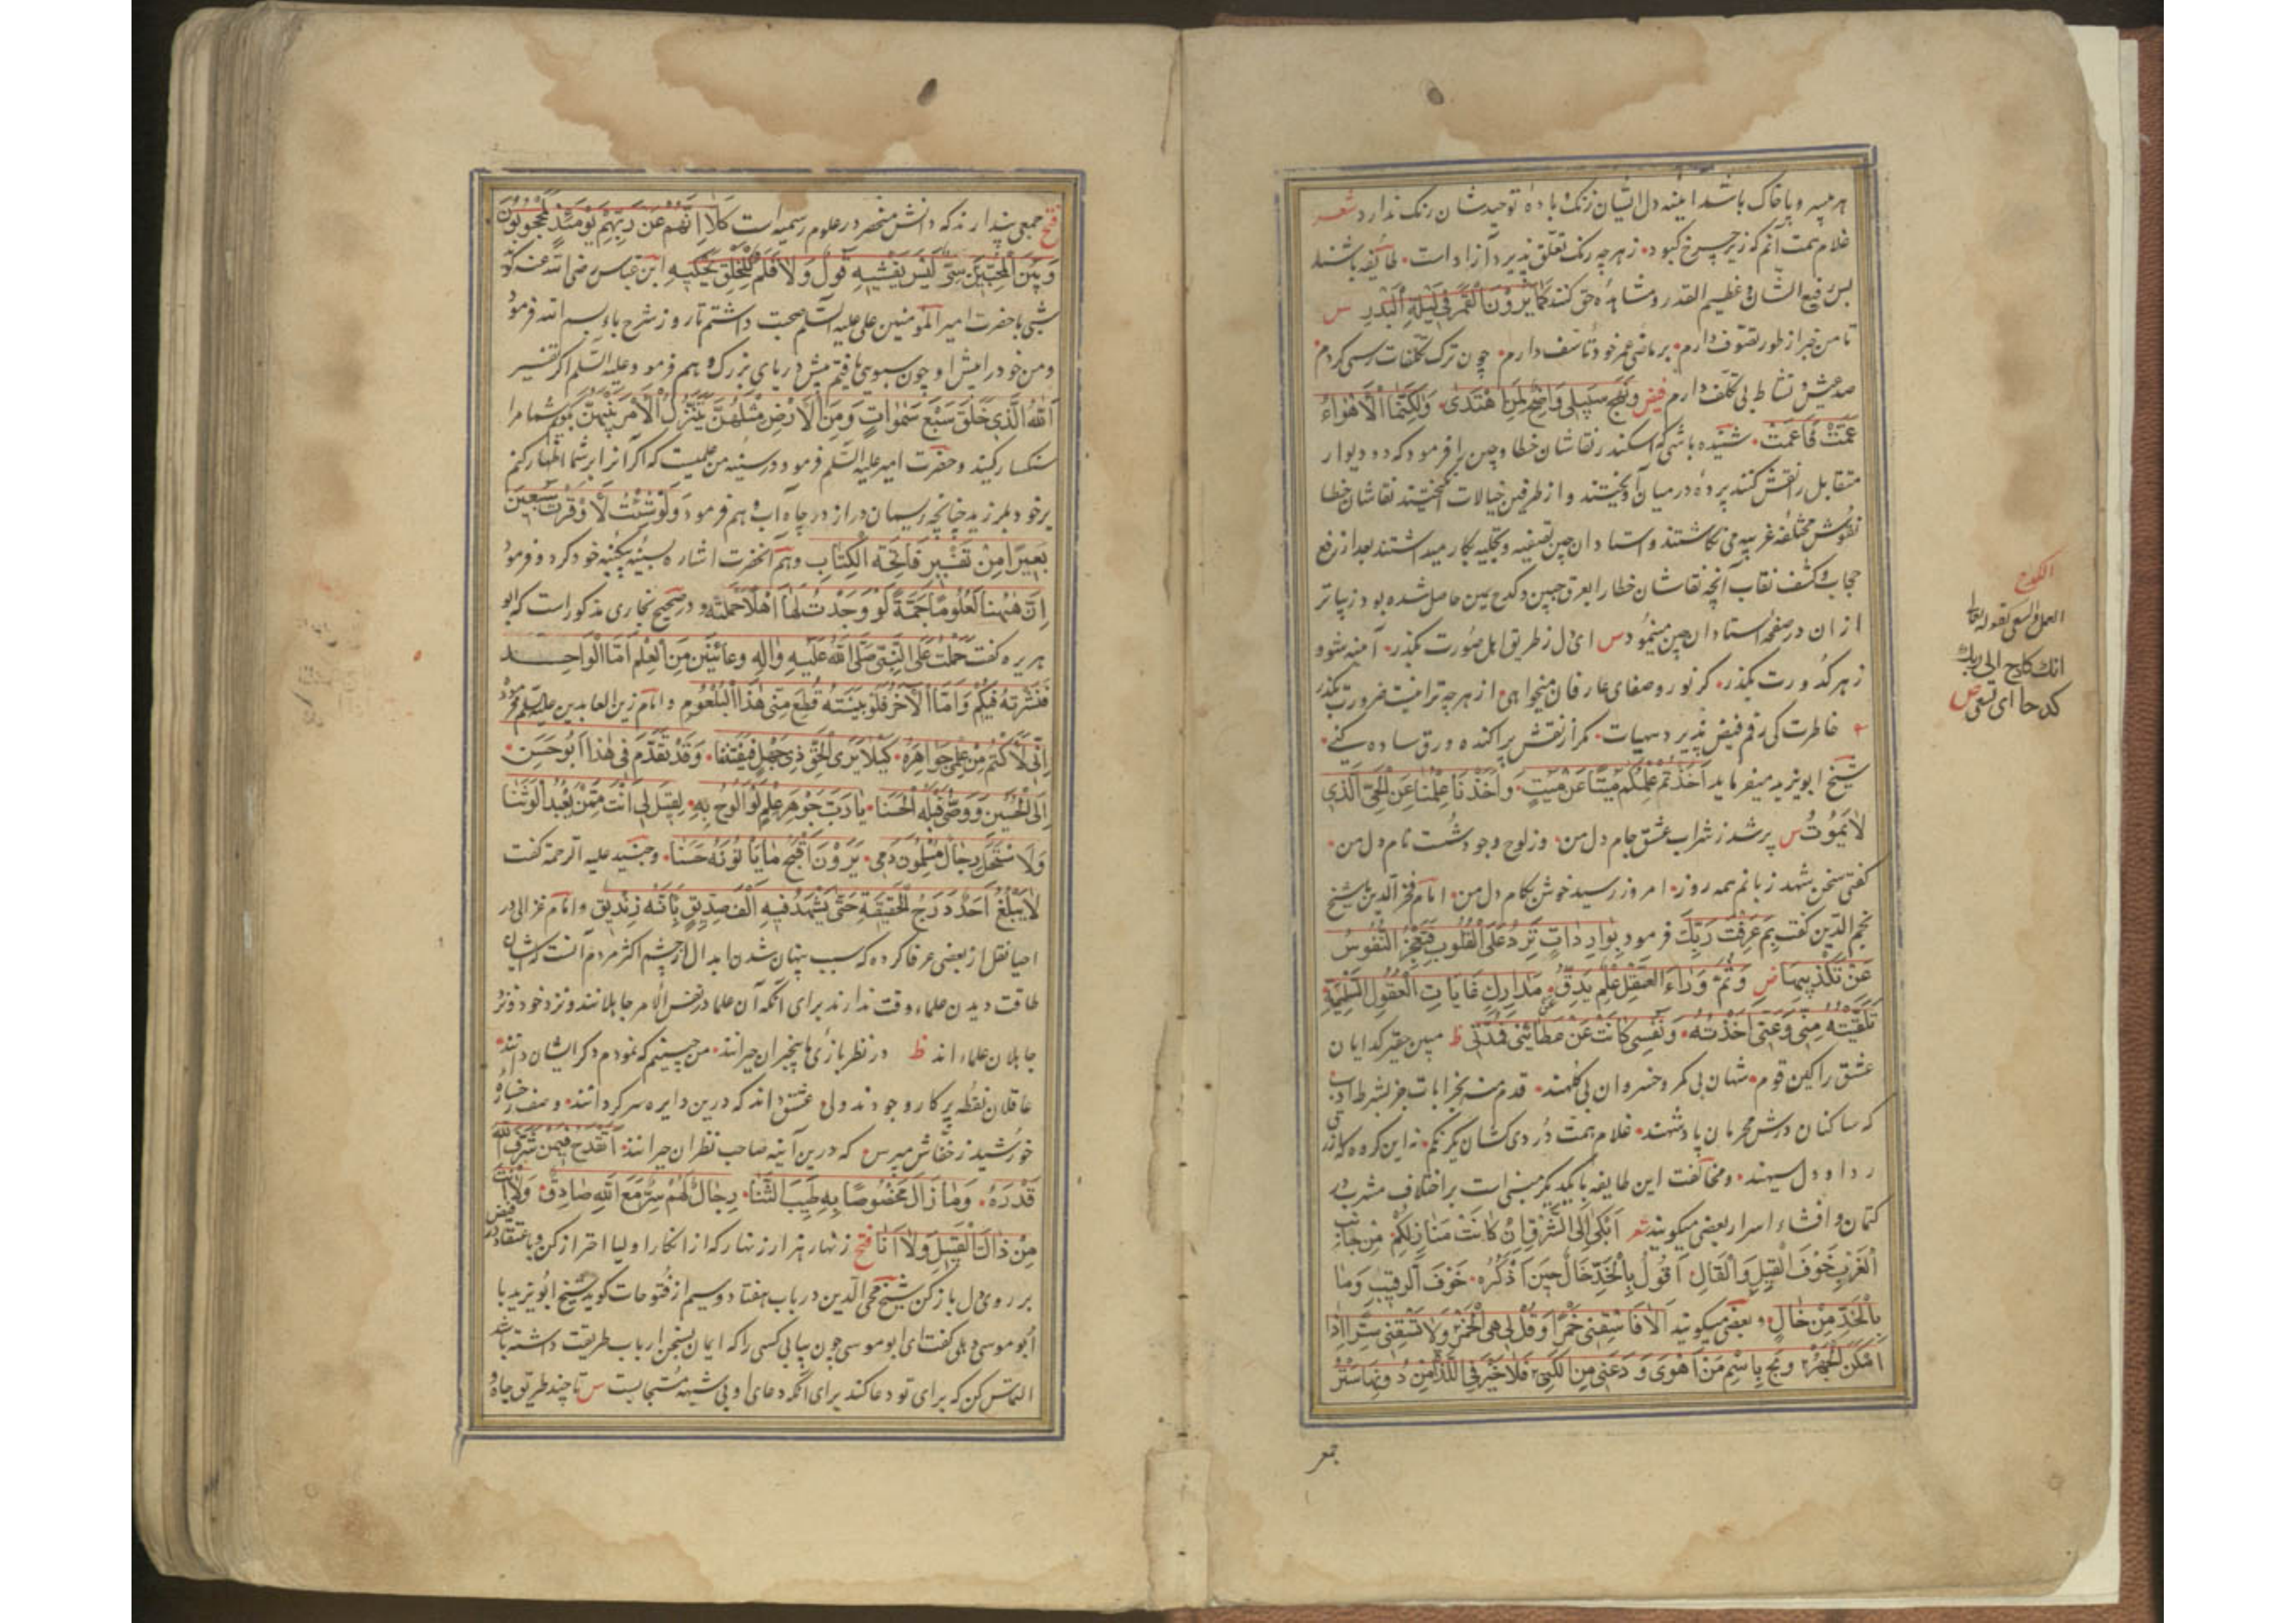 هر سپهر و با خاک باشد آینه دل ایشان زنک باده توحید شان رنک ندارد شعر
غلام همت آنم که زیر چرخ کبود زهرچه رنک تعلق پذیرد آزاد است طایفه باشند
بس رفیع الشان و عظیم القدر و مشاهده حق کنند كَمَا يَرَوْنَ الْقَمَرَ فِي لَيْلَةِ الْبَدْرِ س
تا من خبر از طور تصوف دارم بر ماضی عمر خود تاسف دارم چون ترک تکلفات رسمی کردم
صد عیش و نشاط بی تکلف دارم فیض وَنَهْجُ سَبِيلِي وَاضِحٌ لِمَنِ اهْتَدَى وَلٰكِنَّمَا الْأَهْوَاءُ
عَمَّتْ فَأَعْمَتْ شنیده باشی که اسکندر نقاشان خطا و چین را فرمود که دو دیوار
متقابل را نقش کنند پرده در میان آویختند و از طرفین خیالات انگیختند نقاشان خطا
نقوش مختلفه غریبه می نکاشتند و استادان چین تصفیه و تجلیه بکار میداشتند بعد از رفع
حجاب و کشف نقاب آنچه نقاشان خطا را بعرق جبین و کدح یمین حاصل شده بود زیباتر
از ان در صفحه استادان چین مینمود س ای دل ز طریق اهل صورت بکذر آینه شو و
ز هر کدورت بکذر کر نور و صفای عارفان میخواهی از هرچه ترا نیست ضرورت بکذر
خاطرت کی رقم فیض پذیرد هیهات مکر از نقش پراکنده ورق ساده کنی
شیخ ابویزید میفرماید أَخَذْتُمْ عِلْمَكُمْ مَيْتًا عَنْ مَيْتٍ وَأَخَذْنَا عِلْمَنَا عَنِ الْحَيِّ الَّذِي
لَا يَمُوتُ س پر شد ز شراب عشق جام دل من وز لوح وجود شست نام دل من
کفتی سخن شهد زبانم همه روز امروز رسید خوش بکام دل من امام فخر الدین با شیخ
نجم الدین کفت بِمَ عَرَفْتَ رَبَّكَ فرمود بِوَارِدَاتٍ تَرِدُ عَلَى الْقُلُوبِ فَتَعْجِزُ النُّفُوسُ
عَنْ تَكْذِيبِهَا ض وَثَمَّ وَرَاءَ الْعَقْلِ عِلْمٌ يَدِقُّ عَنْ مَدَارِكِ غَايَاتِ الْعُقُولِ السَّلِيمَةِ
تَلَقَّيْتُهُ مِنِّي وَعَنِّي أَخَذْتُهُ وَنَفْسِي كَانَتْ عَنْ عَطَائِي مُمِدَّتِي ظ مبین حقیر کدایان
عشق را کاین قوم شهان بی کمر و خسروان بی کلهند قدم منه بخرابات جز بشرط ادب
که ساکنان درش محرمان پادشهند غلام همت دردی کشان یکرنکم نه این کروه که ازرق
ردا و دل سیهند و مخالفت این طایفه با یکدیکر مبنی است بر اختلاف مشرب در
کتمان و افشاء اسرار بعضی میکویند شعر أَبْكِي إِلَى الشَّرْقِ إِنْ كَانَتْ مَنَازِلُكُمْ مِنْ جَانِبِ
الْغَرْبِ خَوْفَ الْقِيلِ وَالْقَالِ أَقُولُ بِالْخَدِّ خَالٌ حِينَ أَذْكُرُهُ خَوْفَ الرَّقِيبِ وَمَا
بِالْخَدِّ مِنْ خَالٍ و بعضی میکویند أَلَا فَاسْقِنِي خَمْرًا وَقُلْ لِي هِيَ الْخَمْرُ وَلَا تَسْقِنِي سِرًّا إِذَا
أَمْكَنَ الْجَهْرُ وَبُحْ بِاسْمِ مَنْ أَهْوَى وَدَعْنِي مِنَ الْكُنَى فَلَا خَيْرَ فِي اللَّذَّاتِ مِنْ دُونِهَا سَتْرُ
جمعی
الکدح
العمل والسعی کقوله تعالی
انك كادح الی ربك
كدحا ای تسعی ص
فتح جمعی پندارند که دانش منحصر در علوم رسمیه است كَلَّا إِنَّهُمْ عَنْ رَبِّهِمْ يَوْمَئِذٍ لَمَحْجُوبُونَ
وَبَيْنَ الْمُحِبِّينَ سِرٌّ لَيْسَ يُفْشِيهِ قَوْلٌ وَلَا قَلَمٌ لِلْخَلْقِ يَحْكِيهِ ابن عباس رضی الله عنه کوید
شبی با حضرت امیر المؤمنین علی علیه السلام صحبت داشتم تا روز شرح باء بسم الله فرمود
و من خود را پیش او چون سبویی یافتم پیش دریای بزرک و هم فرمود علیه السلام اکر تفسیر
اللهُ الَّذِي خَلَقَ سَبْعَ سَمٰوَاتٍ وَمِنَ الْأَرْضِ مِثْلَهُنَّ يَتَنَزَّلُ الْأَمْرُ بَيْنَهُنَّ بکویم شما مرا
سنکسار کنید و حضرت امیر علیه السلام فرمود در سینه من علمیست که اکر آنرا بر شما اظهار کنم
بر خود بلرزید چنانچه ریسمان دراز در چاه آب و هم فرمود وَلَوْ شِئْتُ لَأَوْقَرْتُ سَبْعِينَ
بَعِيرًا مِنْ تَفْسِيرِ فَاتِحَةِ الْكِتَابِ و هم آنحضرت اشاره بسینه بیکینه خود کرد و فرمود
إِنَّ هٰهُنَا لَعُلُومًا جَمَّةً لَوْ وَجَدْتُ لَهَا أَهْلًا حَمَلَتْهُ و در صحیح بخاری مذکور است که ابو
هریره کفت حَمَلْتُ عَلَى النَّبِيِّ صَلَّى اللهُ عَلَيْهِ وَآلِهِ وِعَائَيْنِ مِنَ الْعِلْمِ أَمَّا الْوَاحِـد
فَنَشَرْتُهُ فِيكُمْ وَأَمَّا الْآخَرُ فَلَوْ بَيَّنْتُهُ قُطِعَ مِنِّي هٰذَا الْبُلْعُومُ و امام زین العابدین علیه السلام فرمود
إِنِّي لَأَكْتُمُ مِنْ عِلْمِي جَوَاهِرَهُ كَيْلَا يَرَى الْحَقَّ ذُو جَهْلٍ فَيَفْتَتِنَا وَقَدْ تَقَدَّمَ فِي هٰذَا أَبُو حَسَنٍ
إِلَى الْحُسَيْنِ وَوَصَّى قَبْلَهُ الْحَسَنَا يَا رُبَّ جَوْهَرِ عِلْمٍ لَوْ أَبُوحُ بِهِ لَقِيلَ لِي أَنْتَ مِمَّنْ يَعْبُدُ الْوَثَنَا
وَلَاسْتَحَلَّ رِجَالٌ مُسْلِمُونَ دَمِي يَرَوْنَ أَقْبَحَ مَا يَأْتُونَهُ حَسَنًا و جنید علیه الرحمة کفت
لَا يَبْلُغُ أَحَدٌ دَرَجَ الْحَقِيقَةِ حَتَّى يَشْهَدَ فِيهِ أَلْفُ صِدِّيقٍ بِأَنَّهُ زِنْدِيقٌ و امام غزالی در
احیا نقل از بعضی عرفا کرده که سبب پنهان شدن ابدال از چشم اکثر مردم آنست که ایشان
طاقت دیدن علماء وقت ندارند برای آنکه آن علما در نفس الامر جاهلانند و نزد خود و نزد
جاهلان علماء اند ظ در نظر بازی ما بیخبران حیرانند من چنینم که نمودم دکر ایشان دانند
عاقلان نقطه پرکار وجودند ولی عشق داند که درین دایره سرکردانند وصف رخساره
خورشید ز خفاش مپرس که درین آینه صاحب نظران حیرانند أَتَقْدَحُ فِيمَنْ شَرَّفَ اللهُ
قَدْرَهُ وَمَا زَالَ مَخْصُوصًا بِهِ طَيِّبُ الثَّنَا رِجَالٌ لَهُمْ سِرٌّ مَعَ اللهِ صَادِقٌ وَلَا أَنْتَ
مِنْ ذَاكَ الْقَبِيلِ وَلَا أَنَا فتح زنهار هزار زنهار که از انکار اولیا احتراز کن و با عتقاد در فیض
بر روی دل باز کن شیخ محی الدین در باب هفتاد و سیم از فتوحات کوید شیخ ابویزید با
ابو موسی دبلی کفت ای ابو موسی چون بیابی کسی را که ایمان بسخن ارباب طریقت داشته باشد
التماس کن که برای تو دعا کند برای آنکه دعای او بی شبهه مستجابست س تا چند طریق جاه و